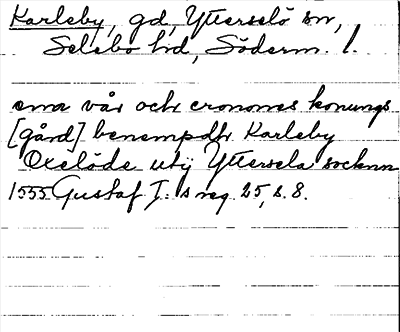 Karleby, gd, Ytterselö sn,
Selebo hd, Söderm. l.
ena vår och cronones konungs
[gård] benempdh Karleby
Oxelöde utij Ytterselа socknn
1555 Gustaf I:s reg. 25, s. 8.